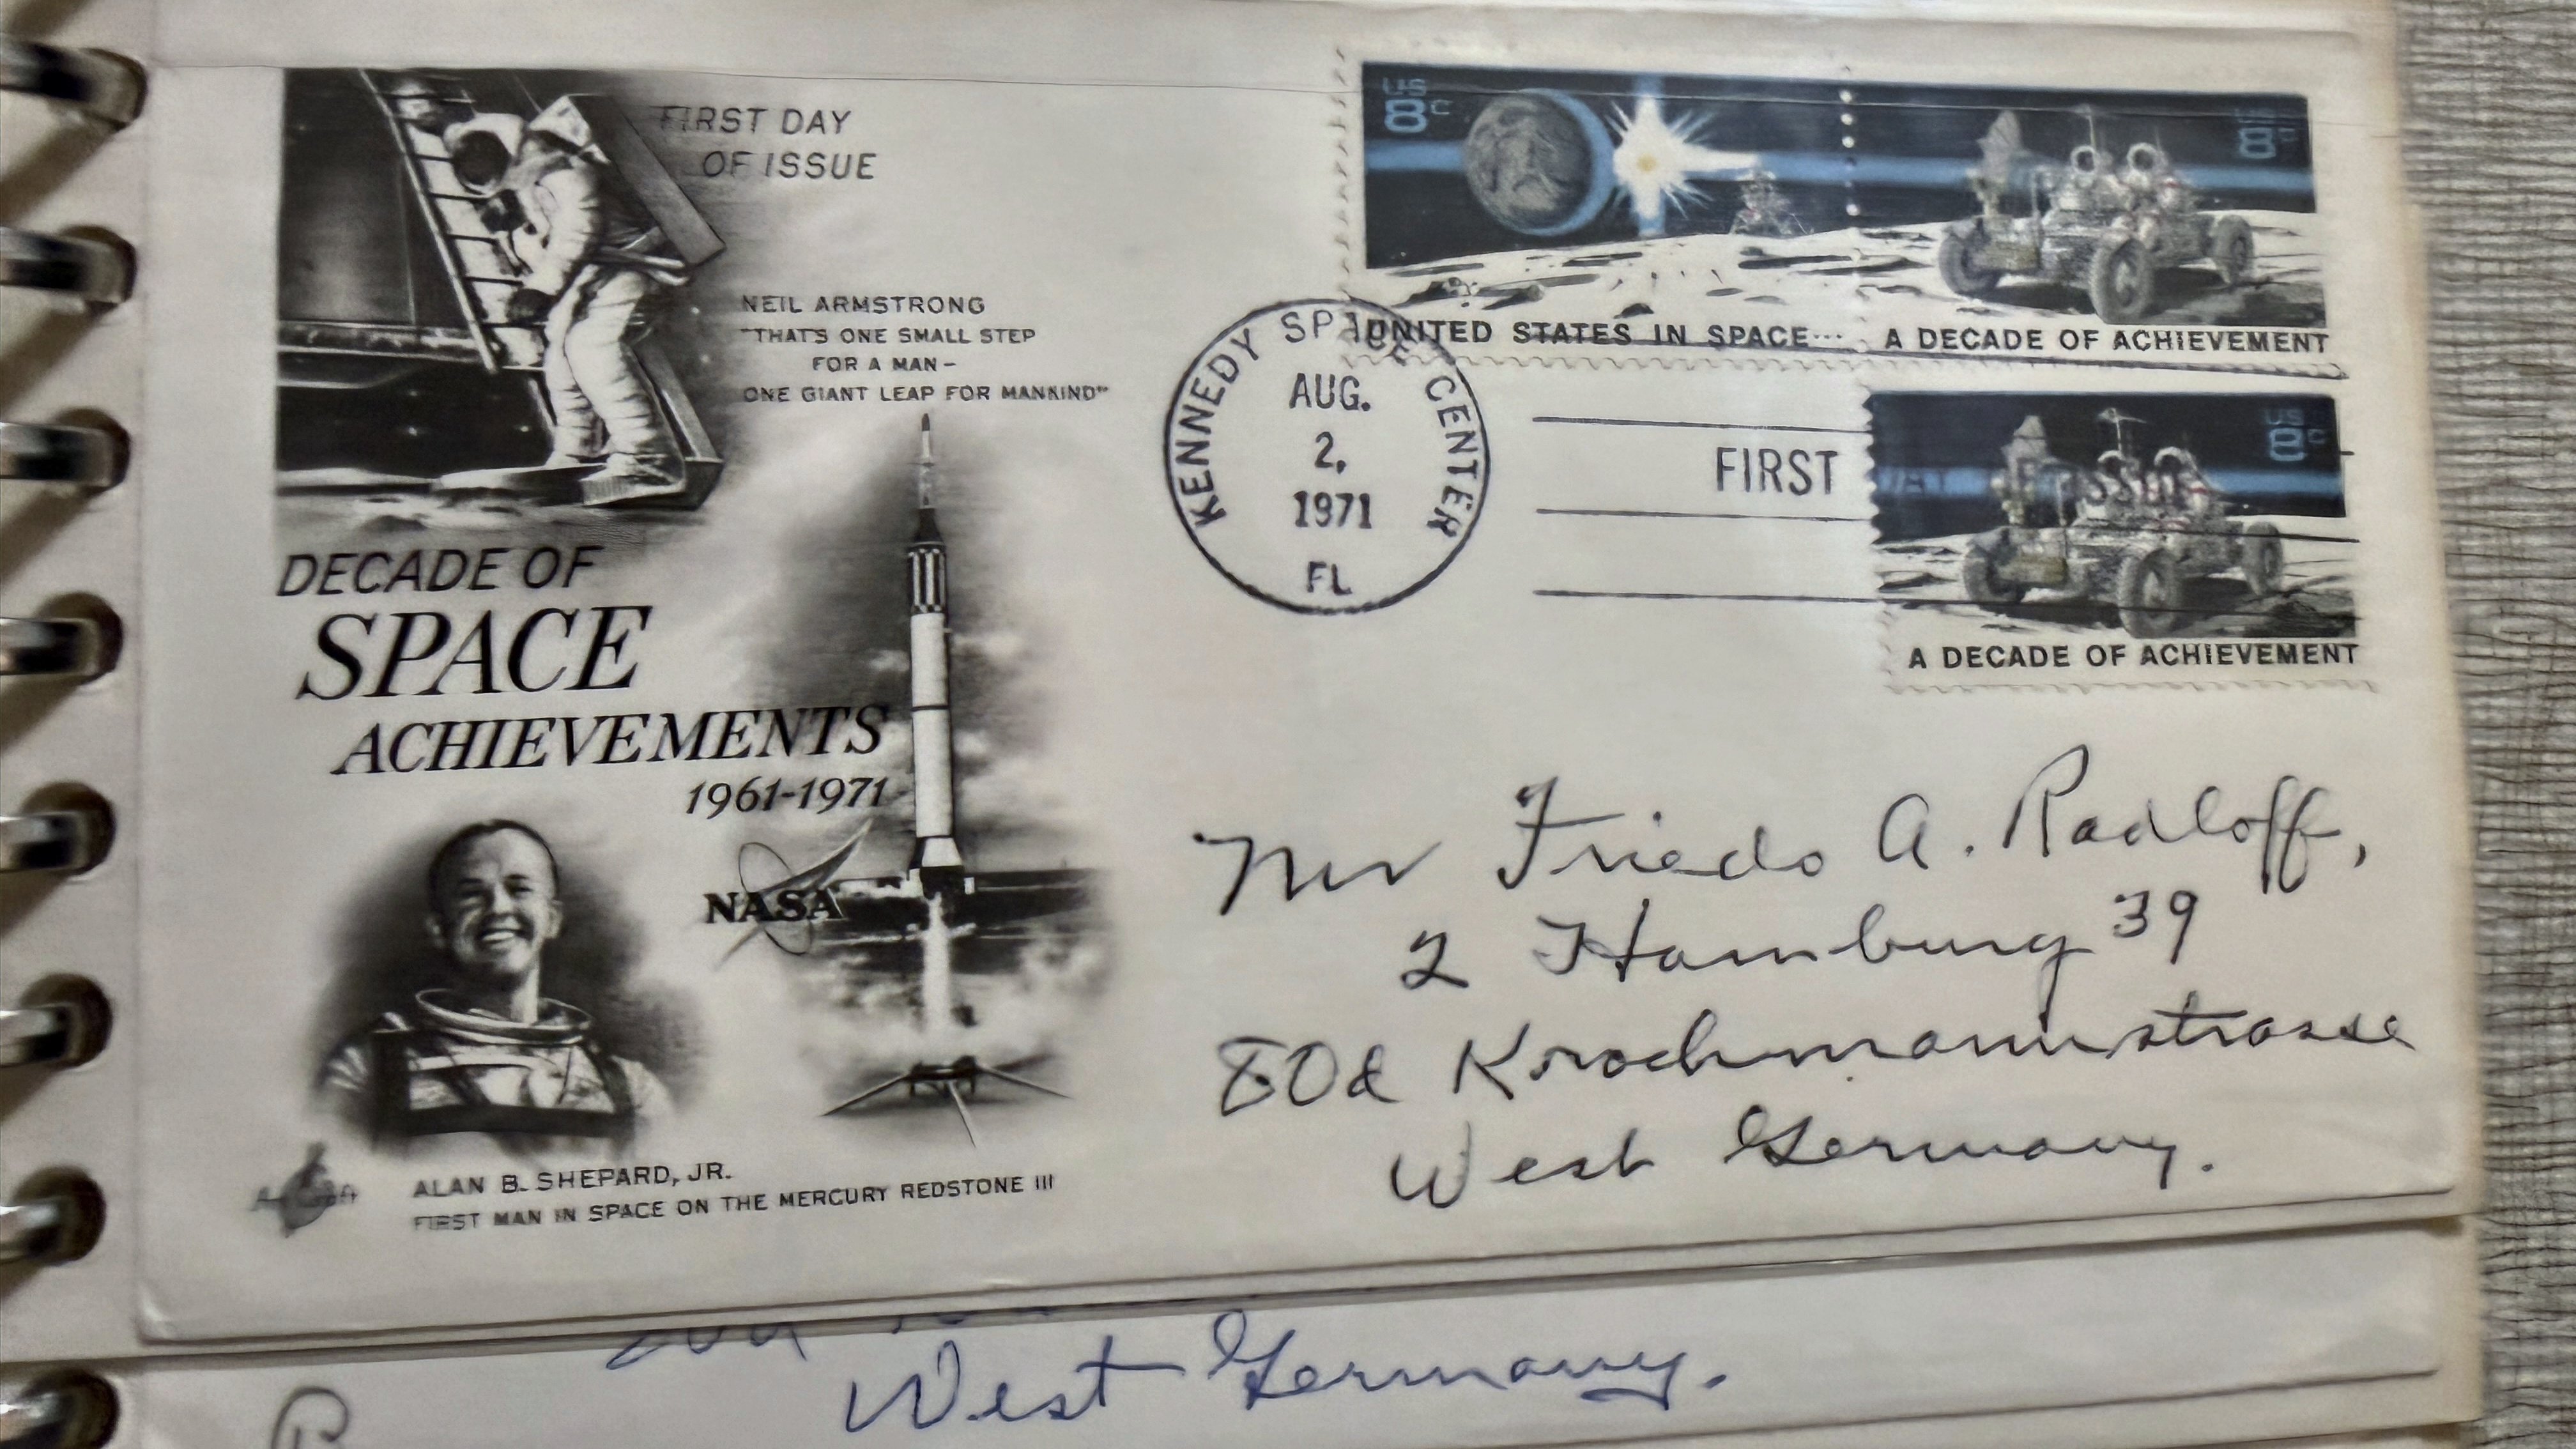 FIRST DAY
OF ISSUE
NEIL ARMSTRONG
"THAT'S ONE SMALL STEP
FOR A MAN –
ONE GIANT LEAP FOR MANKIND"
DECADE OF
SPACE
ACHIEVEMENTS
1961-1971
NASA
ArtCraft
ALAN B. SHEPARD, JR.
FIRST MAN IN SPACE ON THE MERCURY REDSTONE III
US
8c
US
8c
UNITED STATES IN SPACE···
A DECADE OF ACHIEVEMENT
KENNEDY SPACE CENTER
AUG.
2,
1971
FL
FIRST DAY OF ISSUE
US
8c
A DECADE OF ACHIEVEMENT
Mr Friedo A. Radloff,
2 Hamburg 39
80d Krochmannstrasse
West Germany.
West Germany.